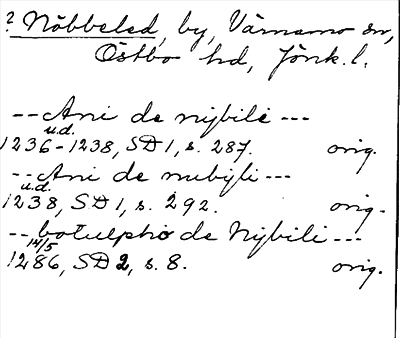 ? Nöbbeled, by, Värnamo sn,
Östbo hd, Jönk. l.
-- Ani de nybile ---
u.d.
1236-1238, SD 1, s. 287. orig.
-- Ani de nubyli ---
u.d.
1238, SD 1, s. 292. orig.
-- botulpho de Nybili ---
14/5
1286, SD 2, s. 8. orig.